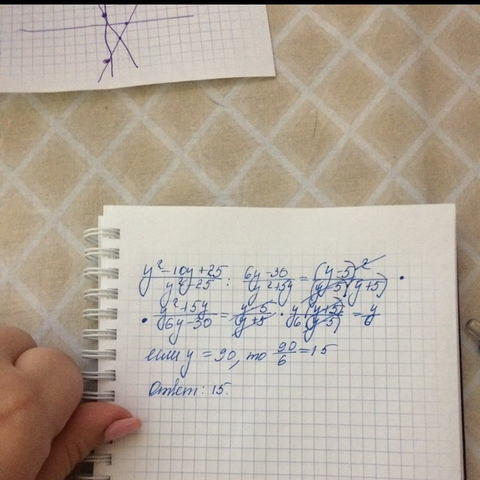 y²-10y+25 / y²-25 : 6y-30 / y²+5y = (y-5)² / (y-5)(y+5) ·
· y²+5y / 6y-30 = y-5 / y+5 · y(y+5) / 6(y-5) = y / 6
если y = 90, то 90/6 = 15
Ответ: 15.